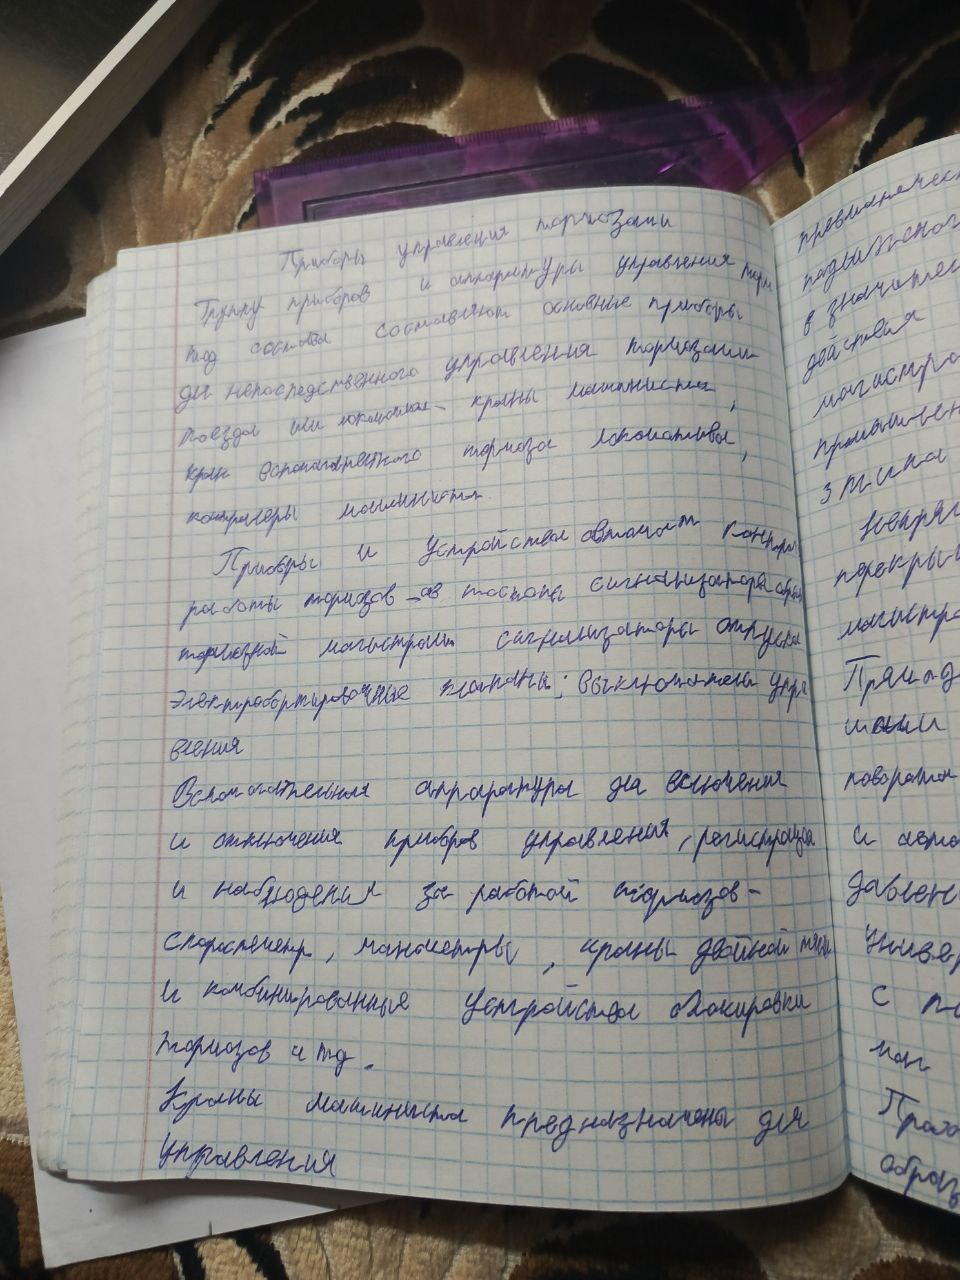 Приборы управления тормозами
Группу приборов и аппаратуры управления торм
под состава составляют основные приборы
для непосредственного управления тормозами
поезда или локомотива - краны машиниста,
кран вспомогательного тормоза локомотива,
контролеры машиниста.
Приборы и устройства автомат контрол
работы тормозов
тормозной магистрали сигнализаторы отпуска
электроблокировочные клапаны; выключатели упра
вления
Вспомогательная аппаратура для включения
и отключения приборов управления, регистрации
и наблюдения за работой тормозов -
скоростемер, манометры, краны двойной тяги
и комбинированные устройства блокировки
тормозов и тд.
Краны машиниста предназначены для
управления
пневматическ
подвижного
в значител
действия
магистра
промышлен
3 типа
Непрям
перекрыш
магистра
Прям д
поворота
и авто
давлен
Универ
с п
маг
образ